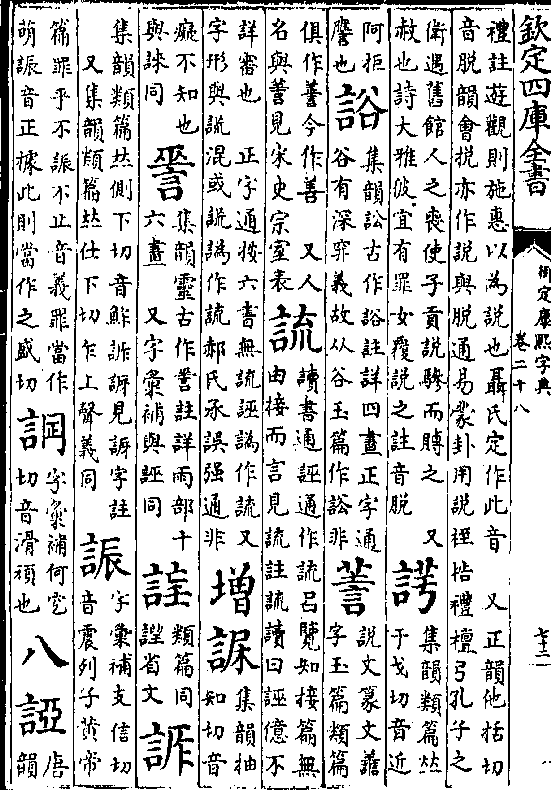 欽定四庫全書
御定康熙字典
卷二十八
七十二
禮註遊觀則施惠以為說也聶氏定作此音 又正韻他括切
音脫韻會挩亦作說與脫通易蒙卦用說桎梏禮檀弓孔子之
衛遇舊館人之喪使子貢說驂而賻之 又
赦也詩大雅彼宜有罪女覆說之註音脫
集韻類篇𠀤
于戈切音近
阿拒
譍也
䛦
集韻訟古作䛦註詳四畫正字通
谷有深窮義故从谷玉篇作訟非
說文篆文譱
字玉篇類篇
俱作䔬今作善 又人
名與䔬見宋史宗室表
䛽
讀書通誣通作䛽呂覽知接篇無
由接而言見䛽註䛽讀曰誣億不
詳審也 正字通按六書無䛽誣譌作䛽又
字形與謊混或謊譌作䛽郝氏承誤强通非
增
集韻抽
知切音
癡不知也
與誺同
集韻靈古作𧨈註詳雨部十
六畫 又字彙補與誣同
類篇同
謹省文
詐
集韻類篇𠀤側下切音鮓訴訝見訝字註
又集韻類篇𠀤仕下切乍上聲義同
䛸
字彙補支信切
音震列子黃帝
篇罪乎不䛸不止音義罪當作
萌䛸音正據此則當作之盛切
字彙補何䆖
切音滑頑也
八
誙
唐
韻